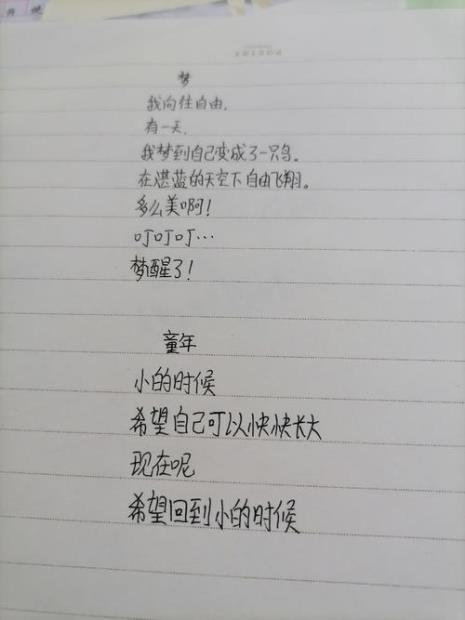 梦
我向往自由，
有一天，
我梦到自己变成了一只鸟。
在湛蓝的天空下自由飞翔。
多么美啊！
叮叮叮…
梦醒了！
童年
小的时候
希望自己可以快快长大
现在呢
希望回到小的时候